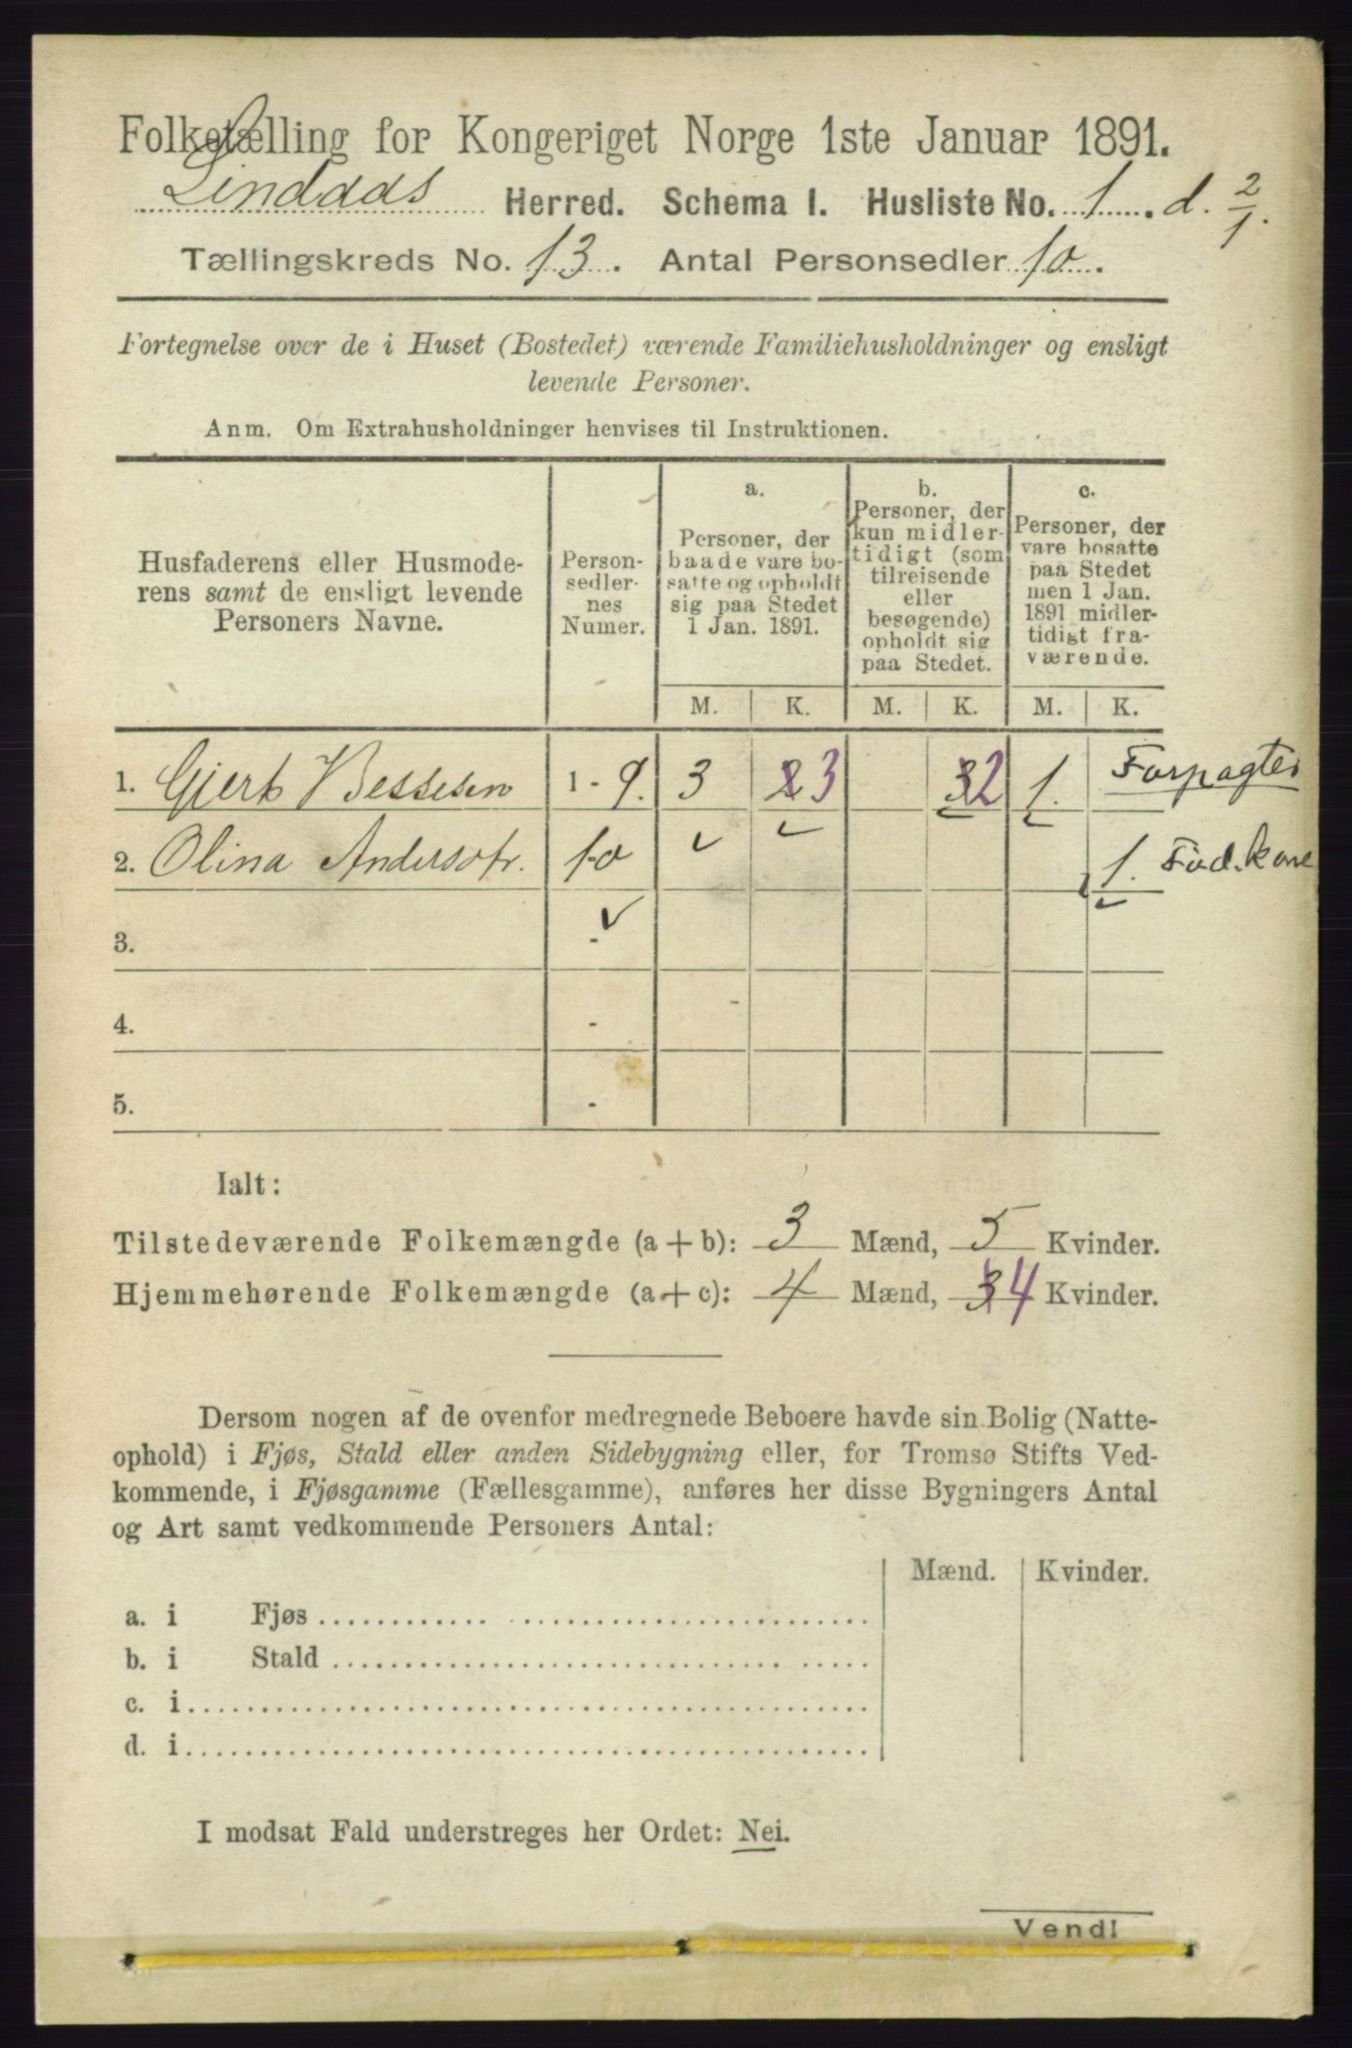 Folketælling for Kongeriget Norge 1ste Januar 1891.
Lindaas Herred. Schema I. Husliste No. 1. d. 2/1.
Tællingskreds No. 13. Antal Personsedler 10.
Fortegnelse over de i Huset (Bostedet) værende Familiehusholdninger og ensligt
levende Personer.
Anm. Om Extrahusholdninger henvises til Instruktionen.
Husfaderens eller Husmode-
rens samt de ensligt levende
Personers Navne.
Person-
sedler-
nes
Numer.
a.
Personer, der
baade vare bo-
satte og opholdt
sig paa Stedet
1 Jan. 1891.
b.
Personer, der
kun midler-
tidigt (som
tilreisende
eller
besøgende)
opholdt sig
paa Stedet.
c.
Personer, der
vare bosatte
paa Stedet
men 1 Jan.
1891 midler-
tidigt fra-
værende.
M. K. M. K. M. K.
1. Gjert Bessesen 1 - 9. 3 2 3 3 2 1. Forpagter
2. Olina Andersdtr. 10 ✓ ✓ 1. Fød.kone
3. - ✓
4. -
5. -
Ialt:
Tilstedeværende Folkemængde (a + b): 3 Mænd, 5 Kvinder.
Hjemmehørende Folkemængde (a + c): 4 Mænd, 3 4 Kvinder.
Dersom nogen af de ovenfor medregnede Beboere havde sin Bolig (Natte-
ophold) i Fjøs, Stald eller anden Sidebygning eller, for Tromsø Stifts Ved-
kommende, i Fjøsgamme (Fællesgamme), anføres her disse Bygningers Antal
og Art samt vedkommende Personers Antal:
Mænd. Kvinder.
a. i Fjøs
b. i Stald
c. i
d. i
I modsat Fald understreges her Ordet: Nei.
Vend!